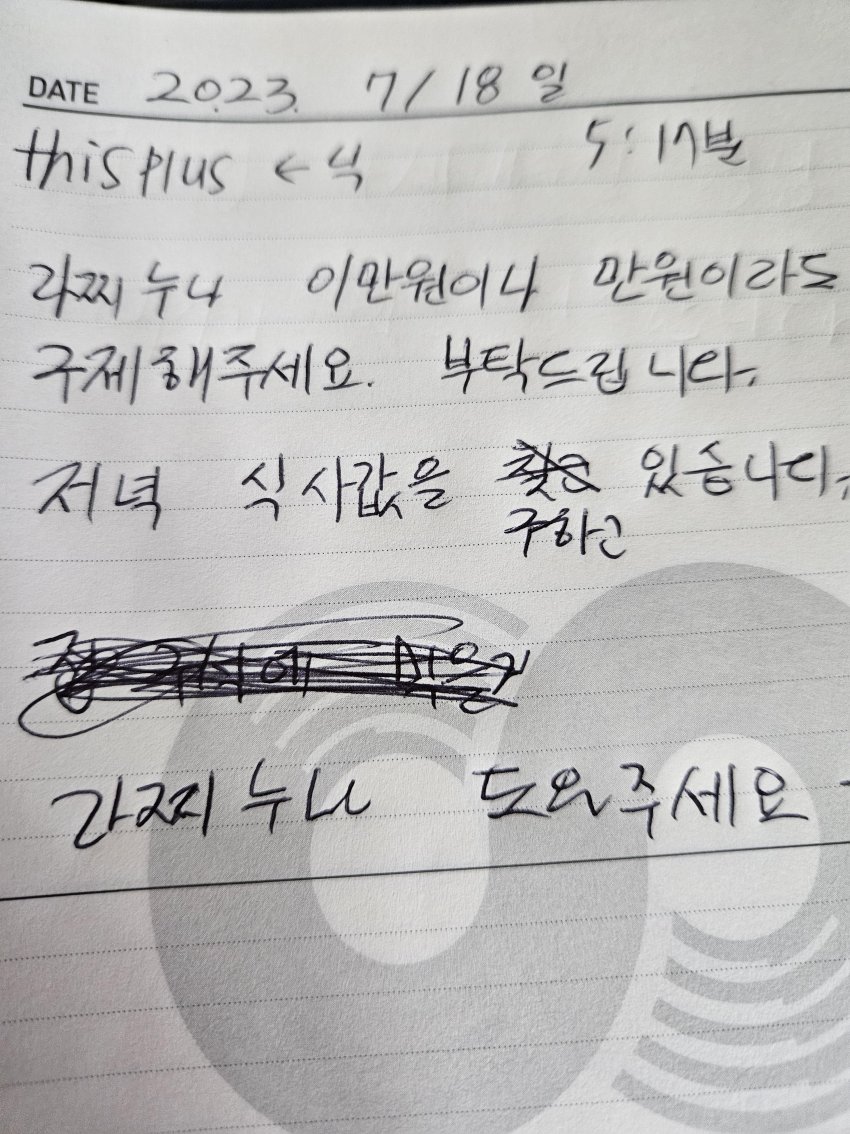 DATE 2023. 7/18 일
thisplus ← 식 5:17분
라찌누나 이만원이나 만원이라도
구제해주세요. 부탁드립니다.
저녁 식사값을 구하고 있습니다.
라찌누나 도와주세요